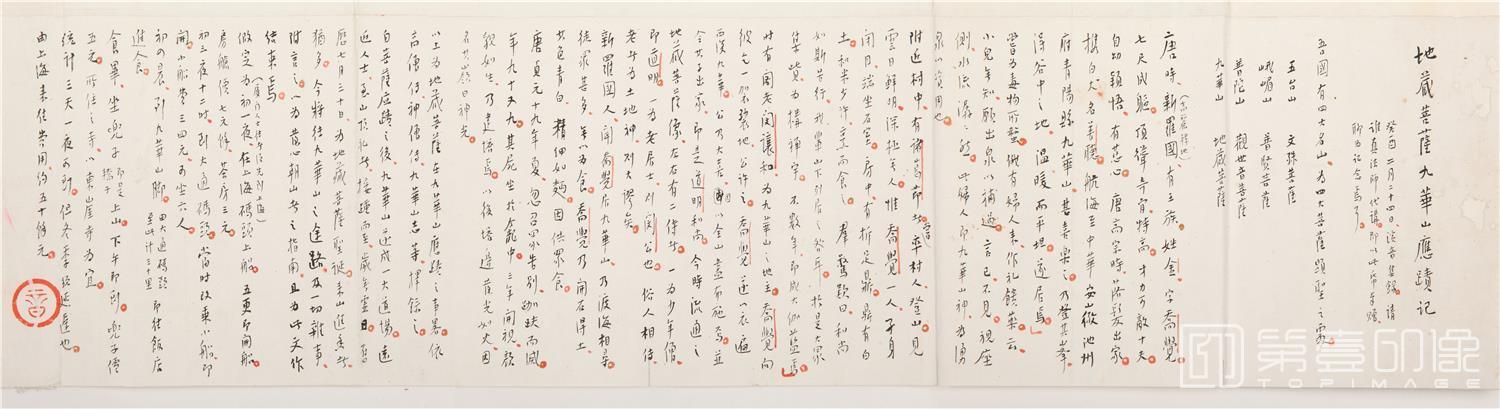 地藏菩薩九華山應蹟記
癸酉二月二十四日、演音集錄、請
真法師代講、即以此稿奉贈
聊為記念焉耳
吾國有四大名山、為四大菩薩顯聖之處
五台山 文殊菩薩
峨嵋山 普賢菩薩
普陀山 觀世音菩薩
九華山 地藏菩薩
唐時、新羅國、有王族、姓金、字喬覺
七尺成軀、頂聳奇骨、特高才力、可敵十夫
自幼穎悟、有慧心、唐高宗時、落髮出家
攜白犬名善聽、航海至中華安徽池州
府青陽縣九華山、甚喜樂之、乃登其峯
得谷中之地、溫暖而平坦、遂居焉
嘗為毒物所螫、倏有婦人來作禮饋藥云
小兒無知、願出泉以補過、言已不見、視座
側、水流潺潺、此婦人即九華山神、為湧
泉以資用也
附近村中有諸葛節者、率村人登山、見
雲日鮮明、深極無人、惟喬覺一人、孑身
閉目、端坐石室、房中有折足鼎、鼎有白
土和米少許、烹而食之、羣驚歎曰、和尚
如斯苦行、我輩山下列居之咎耳、於是大眾
集資為構禪宇、不數年、即成大伽藍焉
時有閔老閔讓和、為九華山之地主、喬覺向
彼乞一袈裟地、公許之、喬覺之衣、遍
覆九華、公乃大喜、以全山盡布施焉、並
令其子出家、即是道明和尚、今時流通之
地藏菩薩像、左右有二侍者、一為少年僧
即道明、一為老居士、即閔公也、俗人相傳
老者為土地神、則大謬矣
新羅國人聞喬覺居九華山、乃渡海相尋
徒眾甚多、無以為食、喬覺乃開石得土
其色青白、精細如麵、因供眾食
唐貞元十九年、夏、忽召眾告別、跏趺而滅
年九十又九、其屍坐於龕中、三年開視、顏
貌如生、乃建塔焉、以後塔邊發光如火、因
名其嶺曰神光
以上為地藏菩薩在九華山應蹟之事略、依
高僧傳神僧傳九華山志等擇錄之
自菩薩應蹟之後、九華山遂成一大道場、遠
近人士、登山頂禮者、接踵而至、歲無虛日、舊
曆七月三十日、為地藏菩薩聖誕、赴山進香者
猶多、今特將往九華山之途路及一切雜事
附言之、以為發心朝山者之指南、且為此文作
結束焉
(廈門人士往者須先到上海)
假定為初一夜、在上海碼頭上船、五更即開船
房艙價七元餘、茶房三元
初三夜十二時、即大通碼頭、當時改乘小船、即
開、小船費三四元、可坐六人
初四晨、到九華山腳、由大通碼頭至此計三十里、即往飯店
進食
食畢、坐兜子即是轎子上山、下午即到、兜子價
五元、所住之寺、以東山崖寺為宜
統計三天一夜可到、但冬季較延遲也
由上海來往共用約五十餘元